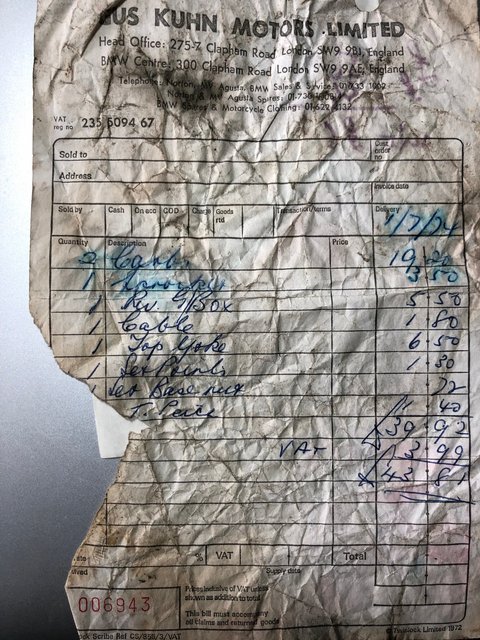 US KUHN MOTORS LIMITED
Head Office: 275-7 Clapham Road London SW9 9BJ, England
BMW Centre: 300 Clapham Road London SW9 9AE, England
Telephone: Norton, MV Agusta, BMW Sales & Service: 01-733 1002
Norton & MV Agusta Spares:
BMW Spares & Motorcycle Clothing: 01-622
VAT reg no 235 5094 67
Sold to
Cust order no
Address
Invoice date
Sold by Cash On eco COD Charge Goods rtd Transaction/terms Delivery
1/7/74
Quantity Description Price
2 Carbs 19 20
1 3 50
1 Rev. G/Box 5 50
1 Cable 1 80
1 Top Yoke 6 50
1 Set Points 1 30
1 Set Base nut 72
1 40
39 92
VAT 3 99
43 81
% VAT Total
Supply date
006943
Prices inclusive of VAT unless
shown as addition to total
This bill must accompany
all claims and returned goods
Scribe Ref CS/85B/3/VAT
© Twinlock Limited 1972